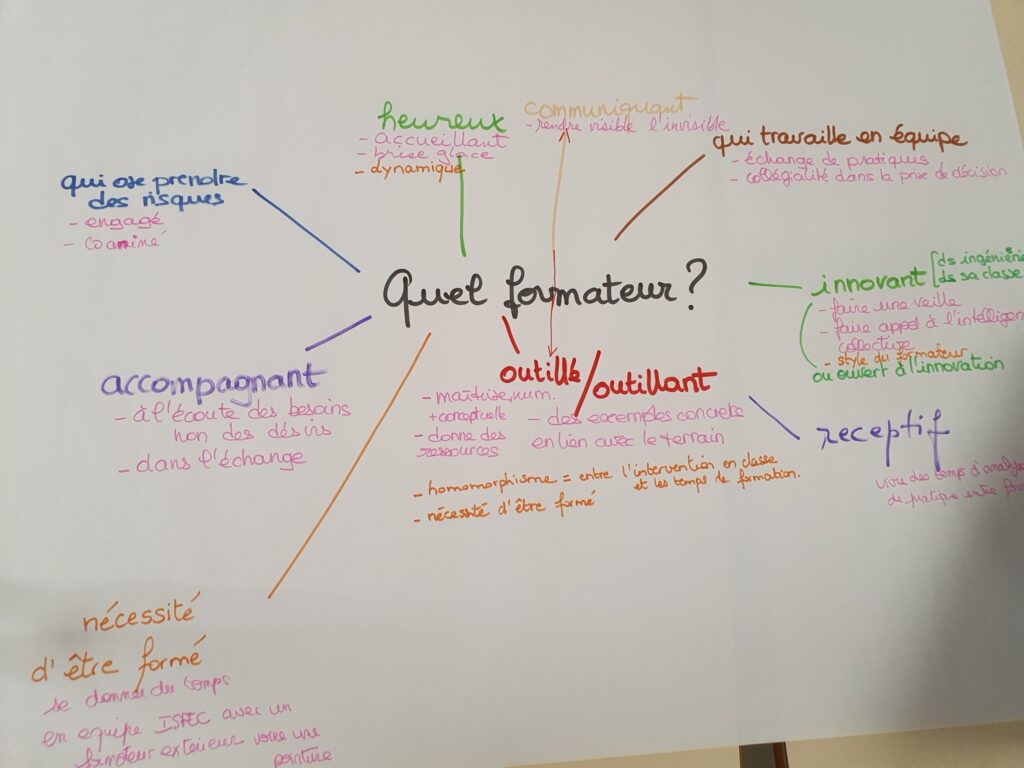 heureux
- accueillant
- brise glace
- dynamique
communiquant
- rendre visible l'invisible
qui travaille en équipe
- échange de pratiques
- collégialité dans la prise de décision
qui ose prendre
des risques
- engagé
Quel formateur ?
innovant
ds ingénierie
ds sa classe
- faire une veille
- faire appel à l'intelligen
collective
- style du formateur
ou ouvert à l'innovation
accompagnant
- à l'écoute des besoins
non des désirs
- dans l'échange
outillé/outillant
- maîtrise num.
+ conceptuelle
- donne des
ressources
- des exemples concrets
en lien avec le terrain
- homomorphisme = entre l'intervention en classe
et les temps de formation.
- nécessité d'être formé
receptif
vivre des temps d'analyse
de pratique entre for
nécessité
d'être formé
se donner du temps
en equipe ISFEC avec un
formateur extérieur voire une
pointure